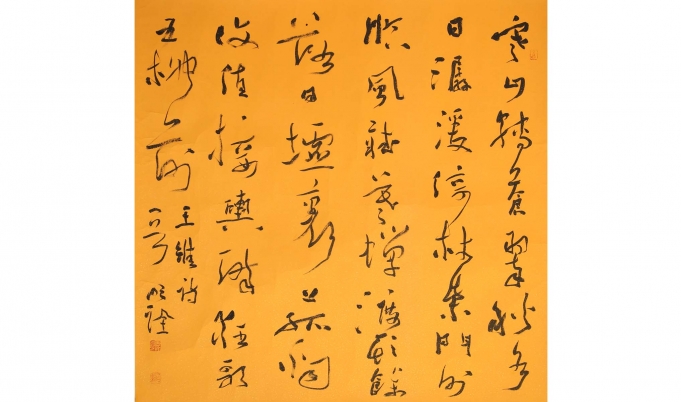 寒山轉蒼翠秋水
日潺湲倚杖柴門外
臨風聽暮蟬渡頭餘
落日墟裏上孤烟
復值接輿醉狂歌
五柳前
王維詩
一首